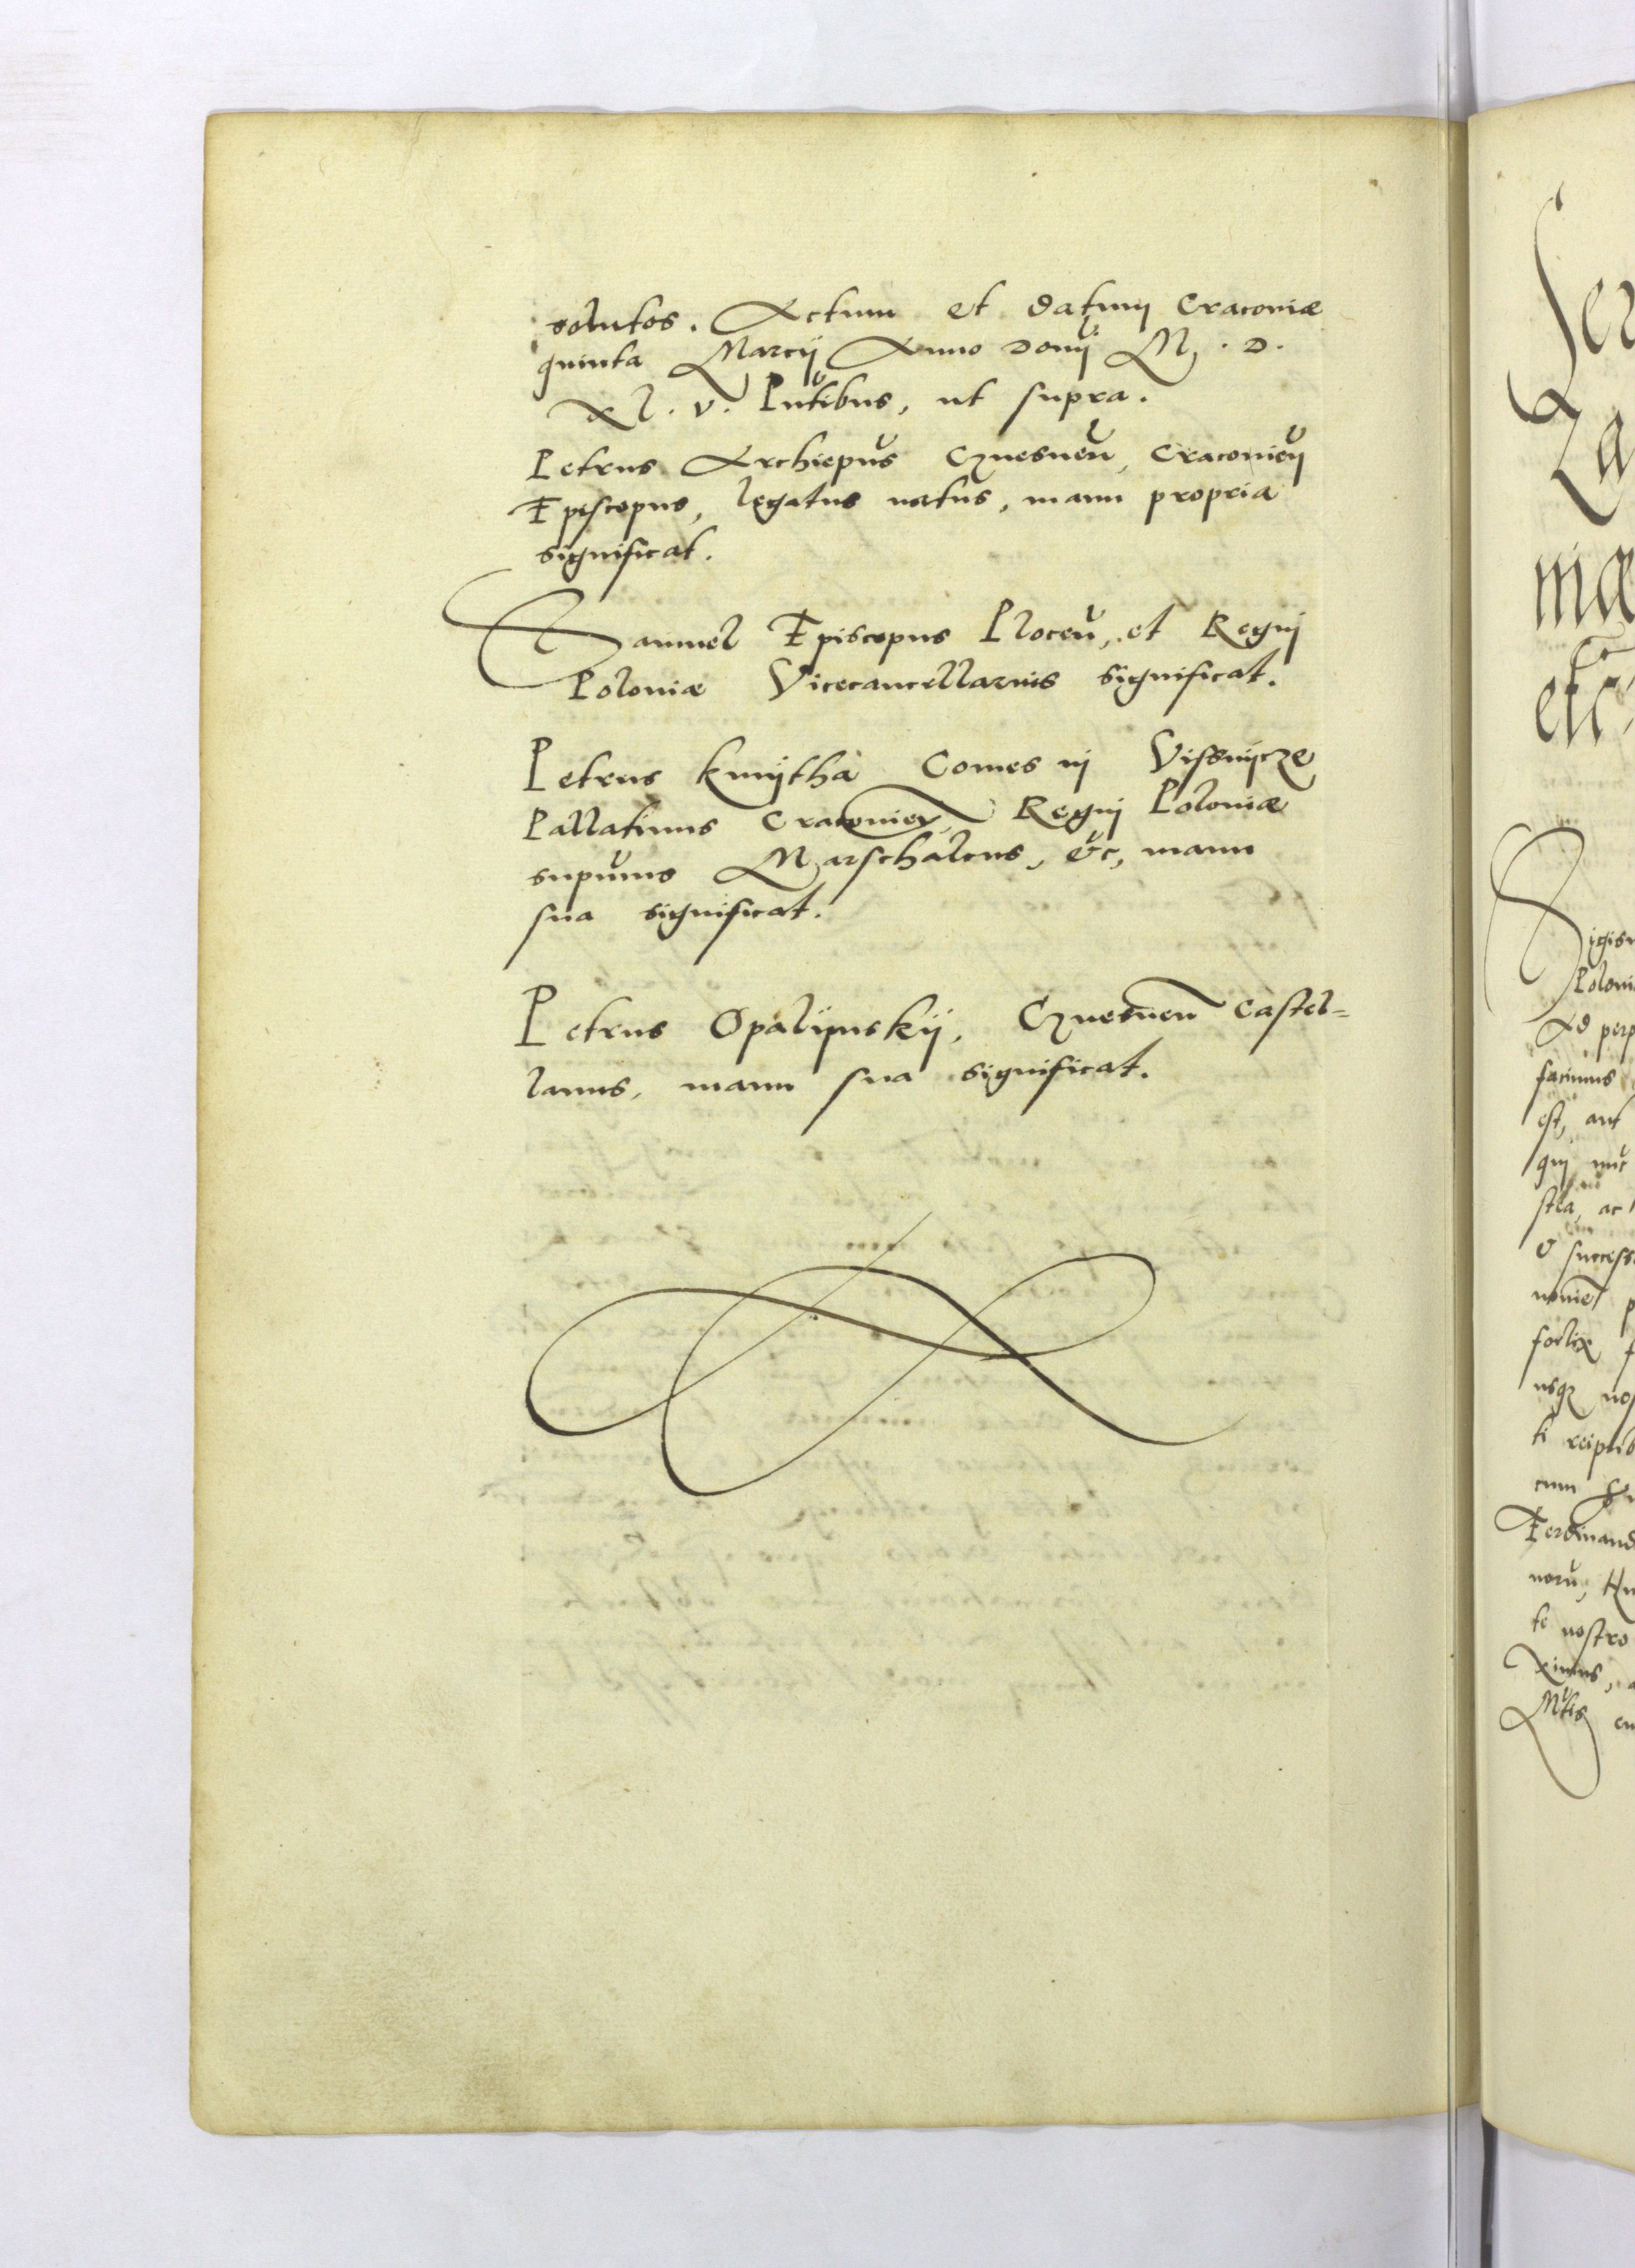 solutos. Actum et datum Cracoviæ
quinta Marcij Anno Donij M. D.
Xl. v. Pntibus, ut supra.
Petrus Archiepus Gznesnen, Cracovien
Episcopus, legatus natus, manu propria
significat.
Samuel Episcopus Plocen, et Regni
Poloniæ Vicecancellarius significat.
Petrus Kmijtha Comes in Vissnijcze
Pallatinus Cracovien, Regni Poloniæ
supmus Marschalcus, etc, manu
sua significat.
Petrus Opalijnskij, Gznesnen Castel=
lanus, manu sua significat.
Ser
Za
niæ
etc
Sigis
Poloni
Ad perp
facimus
est, aut
qui nuc
stea, ac
successo
nomie p
foelix f
usq nos
ti reipub
cum
Ferdinand
noru, Hu
te nostro
ximus, a
Mtis